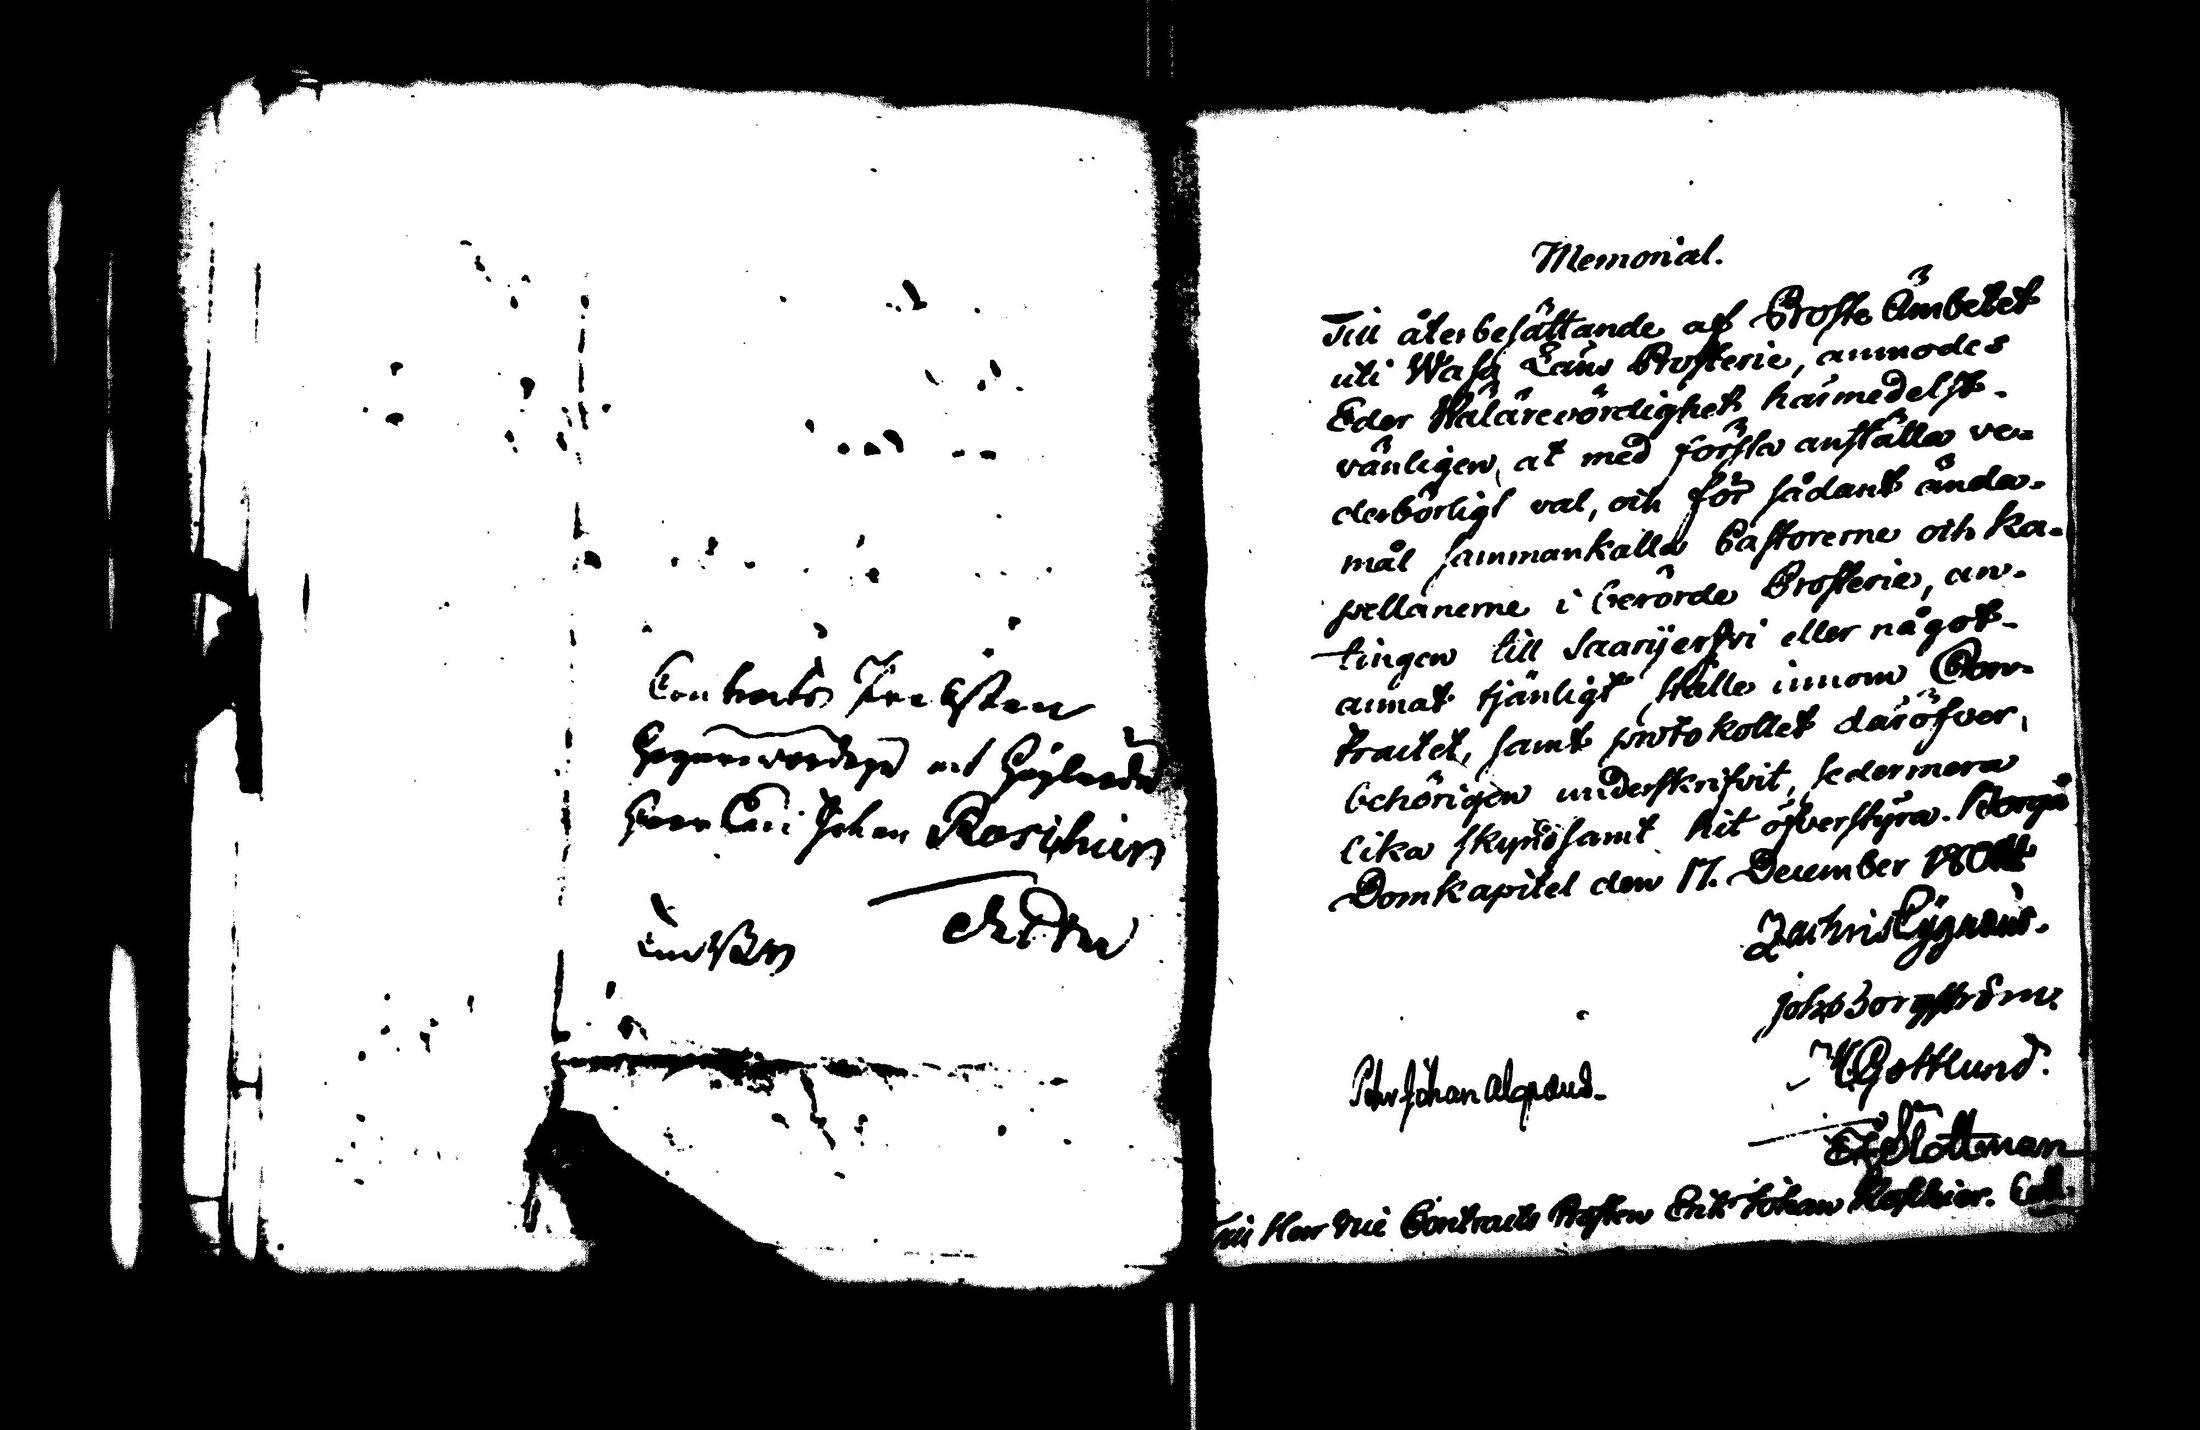 Contracts Prosten
Högwördige och Höglärde
Herr Eric Johan Roschier
Memorial.
Till återbesättande af Proste Ämbetet
uti Wasa Läns Prosterie, anmodes
Eder Wälärevördighet härmedelst
vänligen, at med första anställa ve-
derbörligt val, och för sådant ända-
mål sammankalla Pastorerne och Ka-
pellanerne i berörde Prosterie, an-
tingen till Saarijerfvi eller något
annat tjänligt ställe innom Con-
tractet, samt protokollet däröfver,
behörigen underskrifvit, sedermera
lika skyndsamt hit öfverstyra. Borgå
Domkapitel den 17. December
Zachris Cygnæus.
Joh: Borgström.
M Gottlund.
Pehr Johan Alopæus.
Slottman
Till Herr Vice Contracts Prosten Erik Johan Roschier.